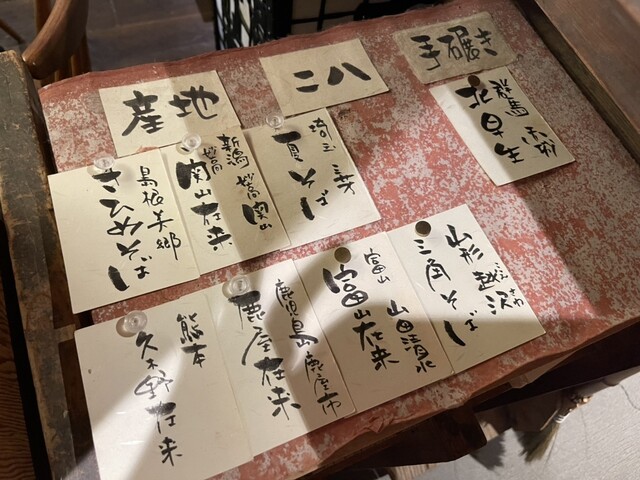 産地
二八
手碾き
島根美郷
さひめそば
新潟
妙高 関山
妙高
関山在来
埼玉 三芳
夏そば
群馬
北早生
熊本
久木野在来
鹿児島 鹿屋市
鹿屋在来
富山 山田清水
富山在来
山形 越沢
こえさわ
三角そば